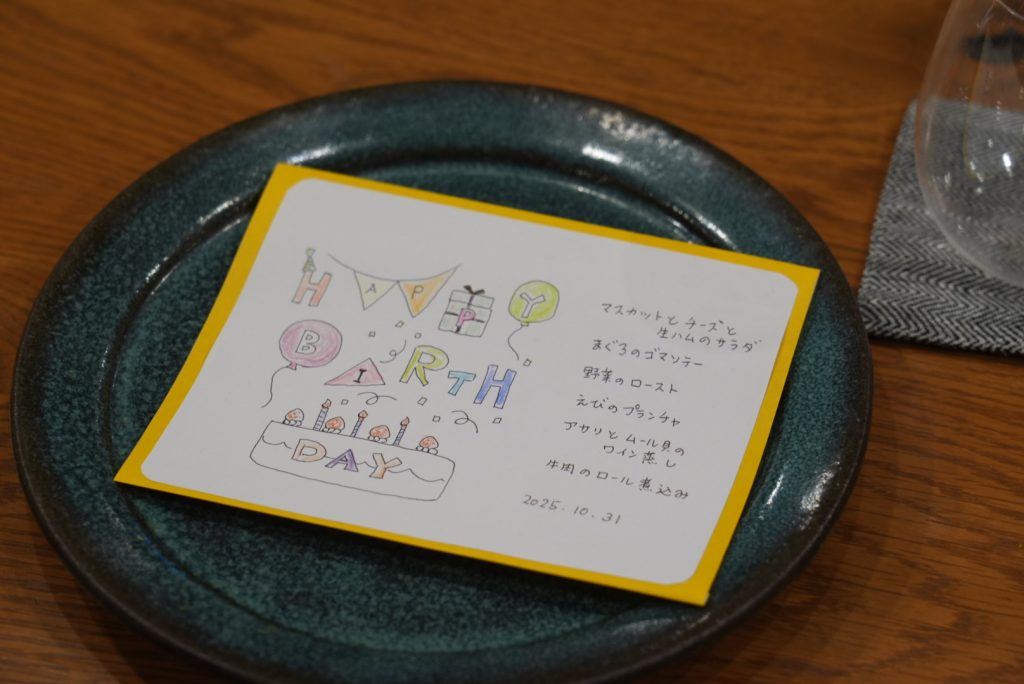 HAPPY
BIRTH
DAY
マスカットとチーズと
生ハムのサラダ
まぐろのゴマソテー
野菜のロースト
えびのプランチャ
アサリとムール貝の
ワイン蒸し
牛肉のロール煮込み
2025.10.31